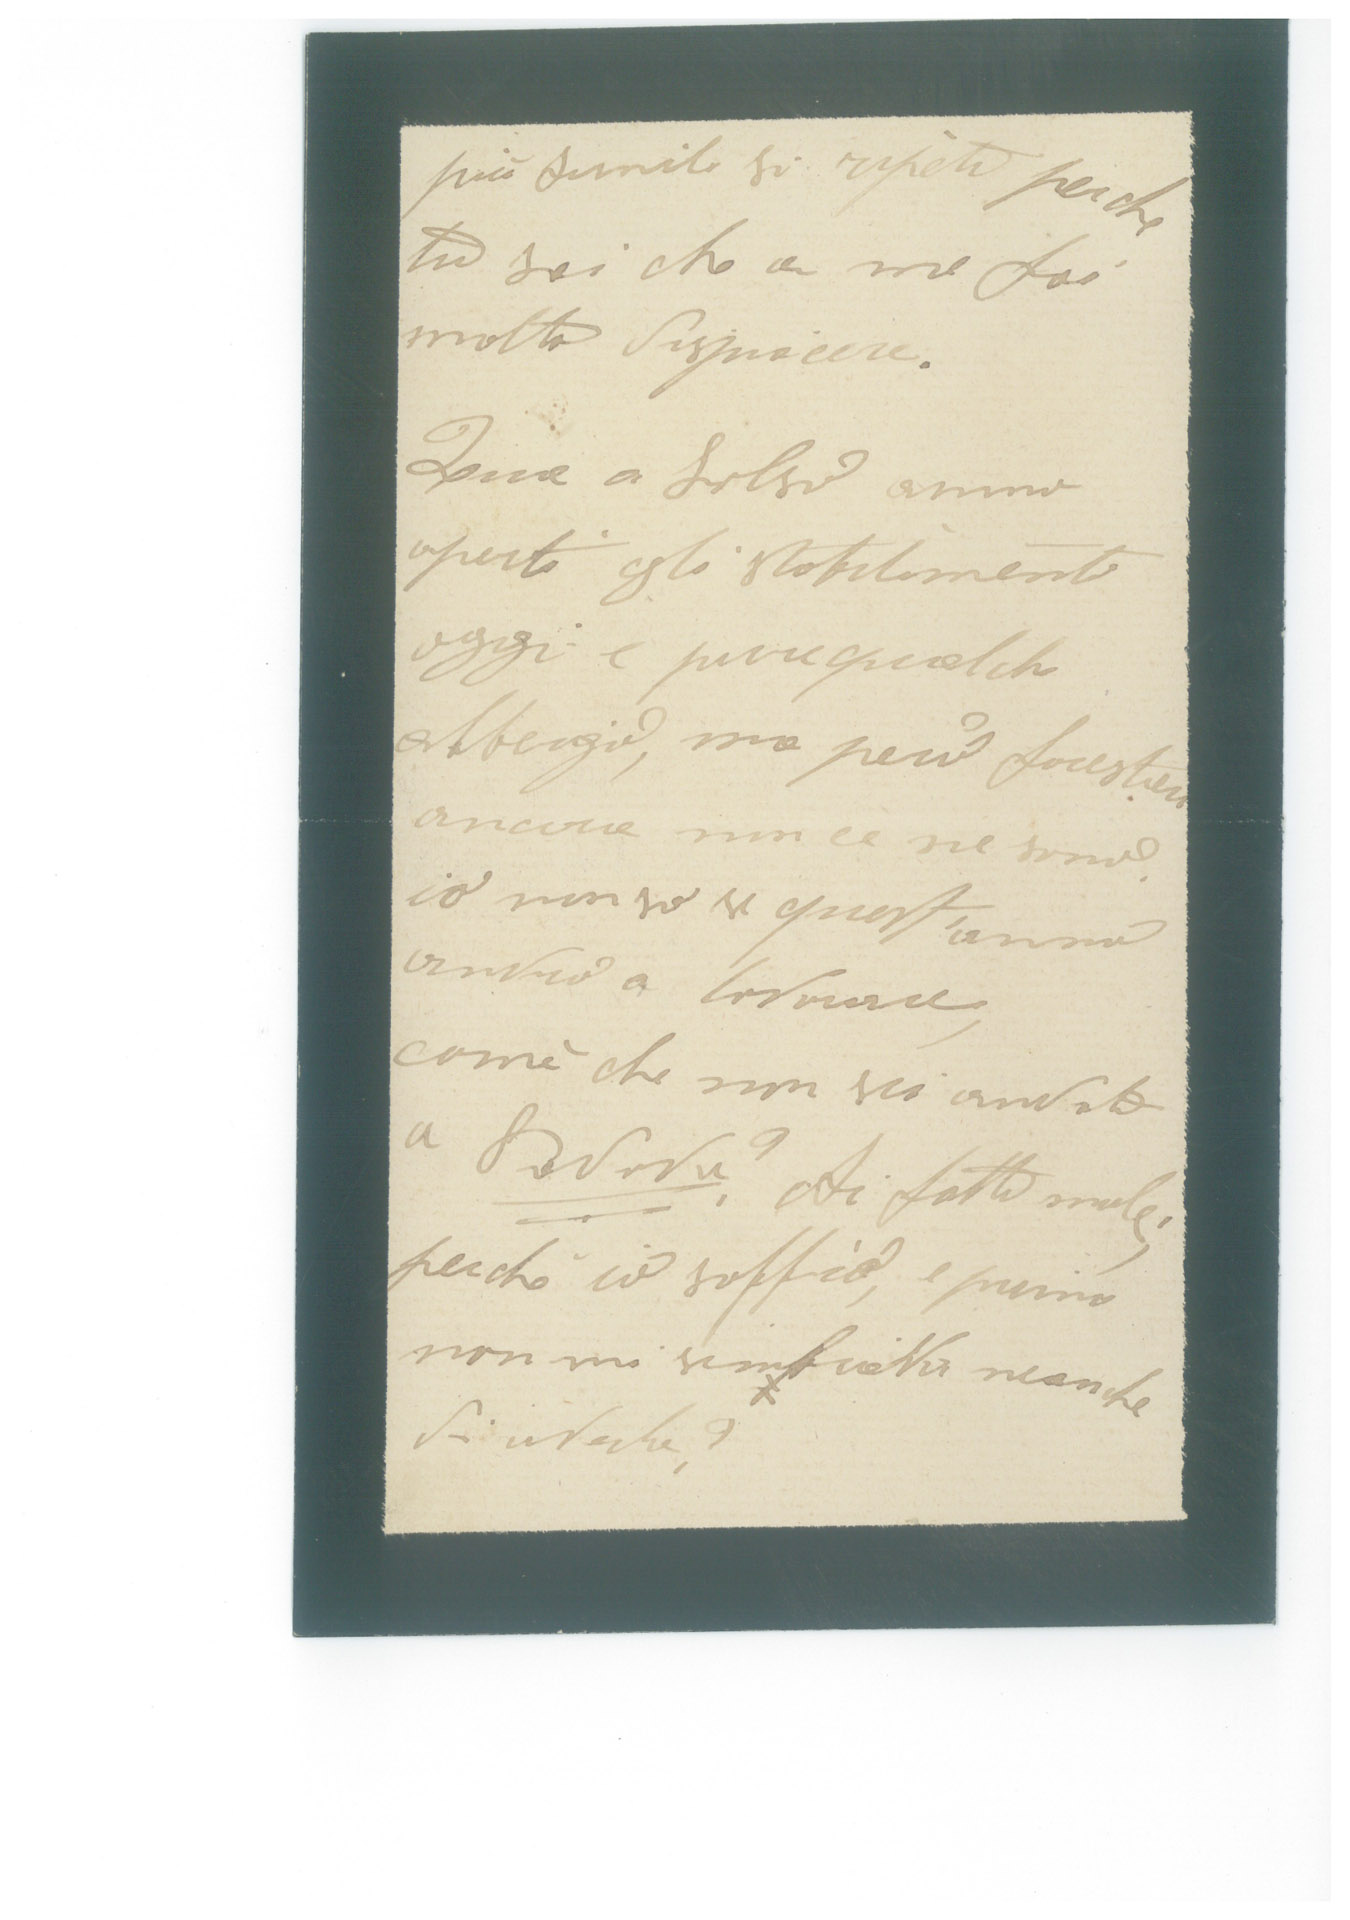 più simile si ripeti perche
tu sai che a me fai
molto dispiacere.
Qua a Salso anno
aperti gli stabilimenti
oggi e pure qualche
albergo, ma però forestieri
ancora non ce ne sono.
io non so se quest'anno
andrò a lavorare,
come che non sei andato
a Padova? Ai fatto male,
perché io soffrò, e prima
non mi
neanche